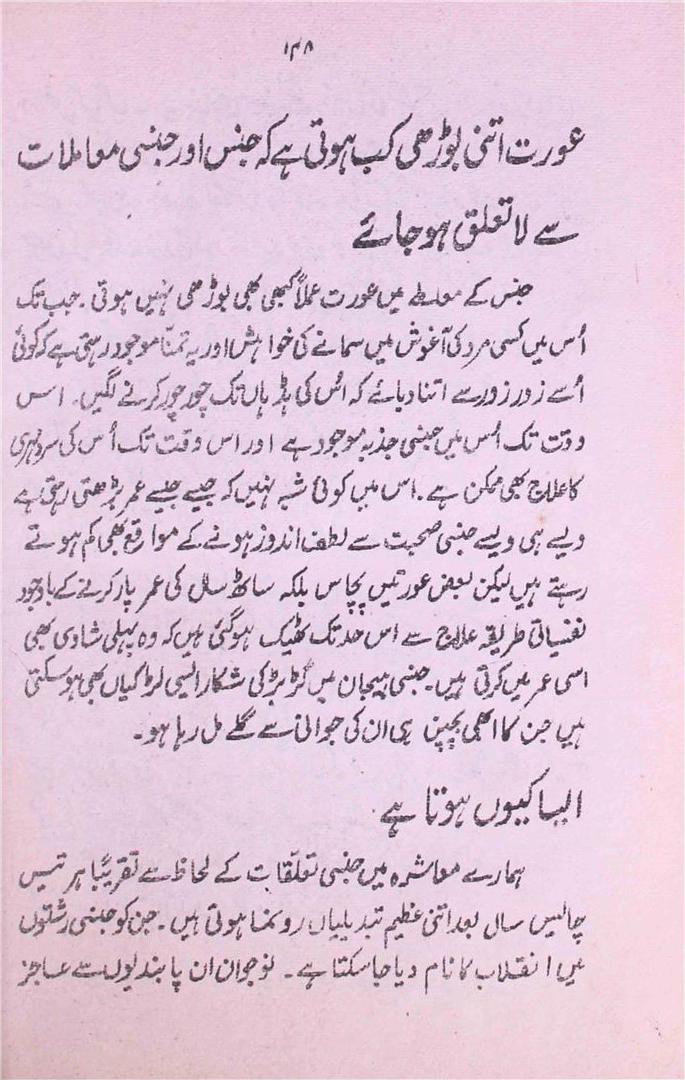 ۱۴۸
عورت اتنی بوڑھی کب ہوتی ہے کہ جنس اور جنسی معاملات
سے لا تعلق ہو جائے
جنس کے معاملے میں عورت عملاً کبھی بھی بوڑھی نہیں ہوتی ۔ جب تک
اُس میں کسی مرد کی آغوش میں سمانے کی خواہش اور یہ تمنّا موجود رہتی ہے کہ کوئی
اُسے زور زور سے اتنا دبائے کہ اُس کی ہڈیاں تک چور چور کرنے لگیں ۔ اس
وقت تک اُس میں جنسی جذبہ موجود ہے اور اس وقت تک اُس کی سرد مہری
کا علاج بھی ممکن ہے ۔ اس میں کوئی شبہ نہیں کہ جیسے جیسے عمر بڑھتی رہتی ہے
ویسے ہی ویسے جنسی صحبت سے لطف اندوز ہونے کے مواقع بھی کم ہوتے
رہتے ہیں لیکن بعض عورتیں پچاس بلکہ ساٹھ سال کی عمر پار کرنے کے باوجود
نفسیاتی طریقہ علاج سے اس حد تک ٹھیک ہو گئی ہیں کہ وہ پہلی شادی بھی
اسی عمر میں کرتی ہیں ۔ جنسی ہیجان میں گڑبڑ کی شکار ایسی لڑکیاں بھی ہو سکتی
ہیں جن کا ابھی بچپن ہی ان کی جوانی سے گلے مل رہا ہو ۔
ایسا کیوں ہوتا ہے
ہمارے معاشرہ میں جنسی تعلّقات کے لحاظ سے تقریباً ہر تیس
چالیس سال بعد اتنی عظیم تبدیلیاں رونما ہوتی ہیں ۔ جن کو جنسی رشتوں
میں انقلاب کا نام دیا جا سکتا ہے ۔ نوجوان ان پابندیوں سے عاجز